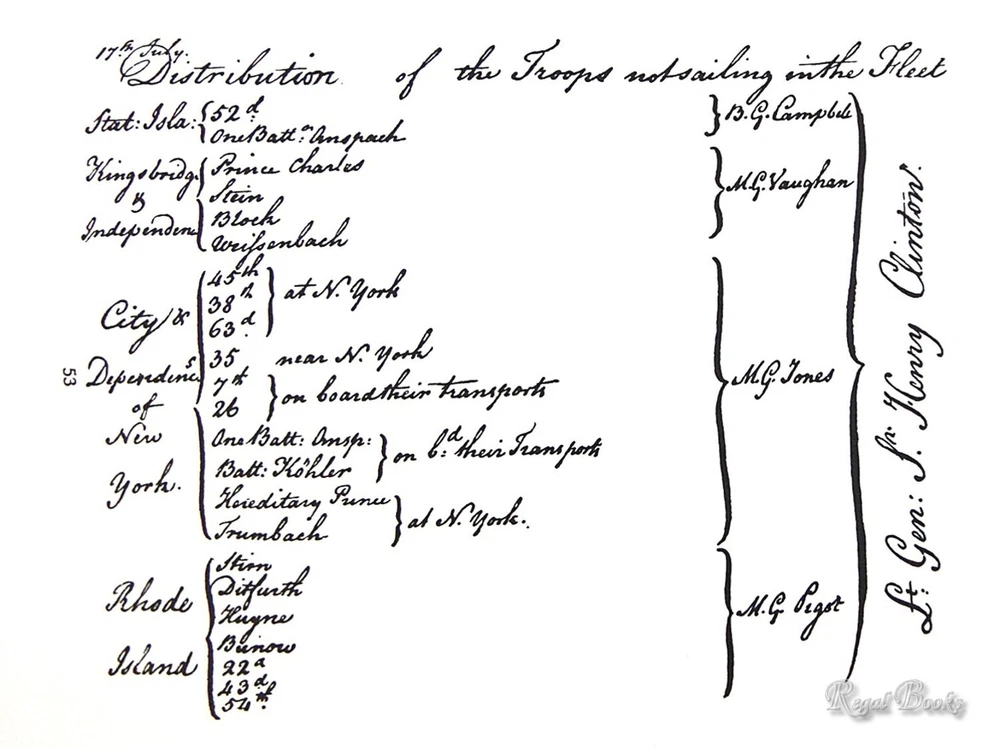 17th July.
Distribution of the Troops not sailing in the Fleet
Stat: Isla: 52d B.G. Campbell
One Batt:n Anspach
Kingsbridge Prince Charles M.G. Vaughan
& Stein
Independen Block
Weissenbach
45th
38th at N. York
City & 63d
35 near N. York
53
Dependencs 7th on board their transports M.G. Jones
of 26
New One Batt: Ansp: on bd their Transports
York. Batt: Köhler
Hereditary Prince at N. York.
Trumbach
Stirn
Rhode Ditfurth M.G. Pigot
Huyne
Island Bünow
22d
43d
54th
Lt: Gen: Sr. Henry Clinton.
Regal Books